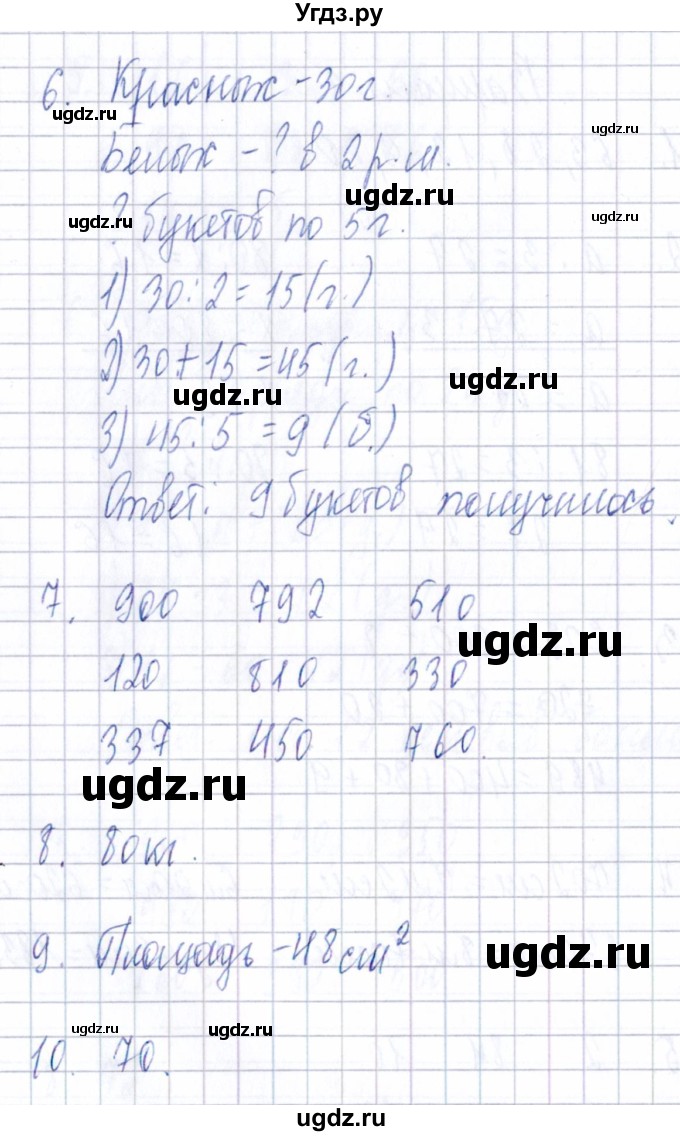 Угдз.ру
6. Красных - 30 г.
ugdz.ru
ugdz.ru
Белых - ? в 2 р. м.
ugdz.ru
? букетов по 5 г.
ugdz.ru
ugdz.ru
1) 30 : 2 = 15 (г.)
2) 30 + 15 = 45 (г.)
ugdz.ru
ugdz.ru
3) 45 : 5 = 9 (б.)
Ответ: 9 букетов получилось.
7. 900 792 510
ugdz.ru
120 810 330
337 450 760.
ugdz.ru
8. 80 кг.
9. Площадь - 48 см²
ugdz.ru
ugdz.ru
ugdz.ru
10. 70.
ugdz.ru